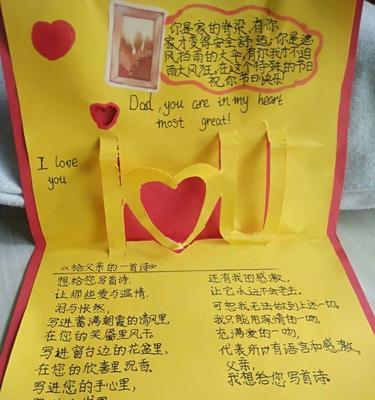 你是家的脊梁,有你
家才变得安全舒适;你是遮
风挡雨的大伞,有你我才不迫
雨大风狂。在这个特殊的节日
祝你节日快乐!
Dad, you are in my heart
most great!
I love
you
i U
《给父亲的一首诗》
想给您写首诗,
让那些爱与温情,
泪与怅然,
写进蓄满朝霞的清风里,
在您的笑蕾里风干。
写进窗台边的花盆里,
在您的欣喜里沉香。
写进您的手心里,
还有我的感激,
让它永远不会老去。
可恕我无法做到上述一切。
我只能用深情的一吻,
充满爱的一吻,
代表所有语言和感激。
父亲,
我想给您写首诗。